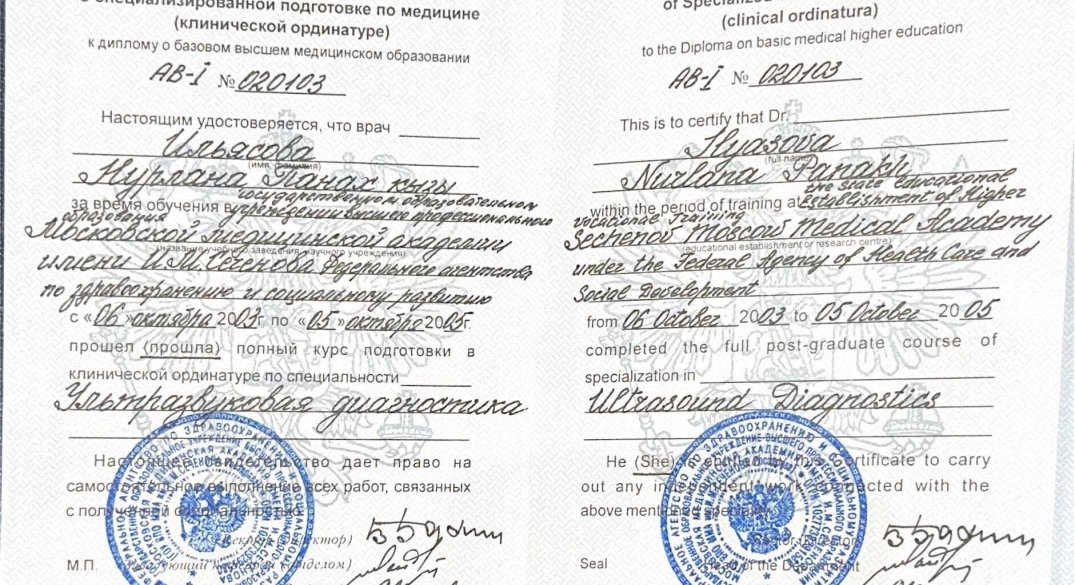 специализированной подготовке по медицине
(клинической ординатуре)
к диплому о базовом высшем медицинском образовании
АВ-I № 020103
Настоящим удостоверяется, что врач
Ильясова
(имя, фамилия)
Нурлана Панах кызы
за время обучения в государственном образовательном
учреждении высшего профессионального
образования
Московской медицинской академии
(название учебного заведения, научного учреждения)
имени И.М.Сеченова Федерального агентства
по здравоохранению и социальному развитию
с «06» октября 2003г. по «05» октября 2005г.
прошел (прошла) полный курс подготовки в
клинической ординатуре по специальности
Ультразвуковая диагностика
Настоящее свидетельство дает право на
самостоятельное выполнение всех работ, связанных
с полученной специальностью
М.П.
of Specialized
(clinical ordinatura)
to the Diploma on basic medical higher education
АВ-I № 020103
This is to certify that Dr.
Ilyasova
(full name)
Nurlana Panakh
within the period of training at the State Educational
Establishment of Higher
Vocational Training
Sechenov Moscow Medical Academy
(educational establishment or research centre)
under the Federal Agency of Health Care and
Social Development
from 06 October 2003 to 05 October 2005
completed the full post-graduate course of
specialization in
Ultrasound Diagnostics
He (She) is entitled by this certificate to carry
out any independent work connected with the
above mentioned speciality
Seal Head of the Department